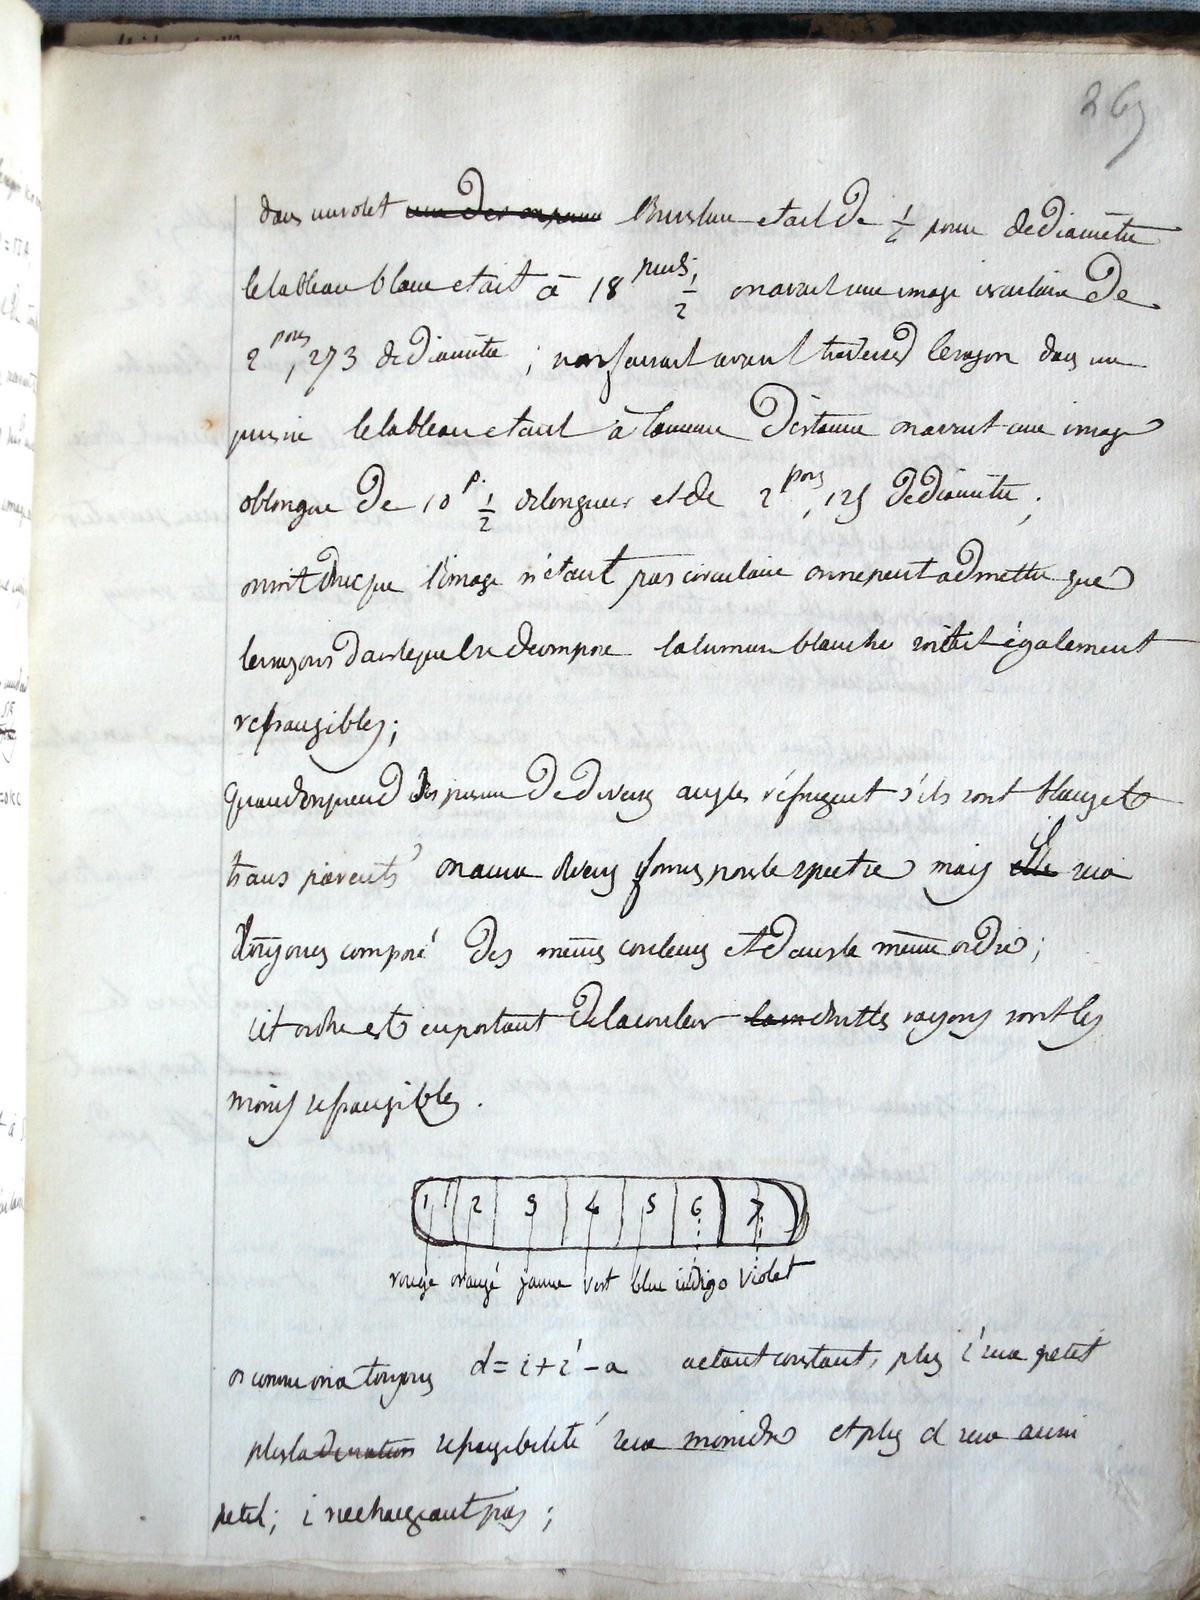 267
dans un volet une des ouverture l'ouverture etait de 1/2 pouce de diametre
le tableau blanc etait à 18 pieds 1/2 on avait une image circulaire de
2 pces,273 de diametre ; newton faisait traverser le rayon dans un
prisme le tableau etant à la meme distance on avait une image
oblongue de 10 p. 1/2 de longueur et de 2 pces,125 de diametre ;
on voit donc que l'image n'étant pas circulaire on ne peut admettre que
les rayons dans lesquels se decompose la lumiere blanche soient également
refrangibles ;
quand on prend des prismes de divers angles réfringent s'ils sont blancs et
transparents on aura divers formes pour le spectre mais elle il sera
toujours composé des mêmes couleurs et dans le même ordre ;
cet ordre est en partant de la couleur dont les rayons sont les
moins refrangibles .
1 2 3 4 5 6 7
rouge orangé jaune vert bleu indigo violet
or comme on a toujours d = i + i' - a a etant constant, plus i' sera petit
plus la deviation refrangibilité sera moindre et plus d sera aussi
petit ; i ne changeant pas ;